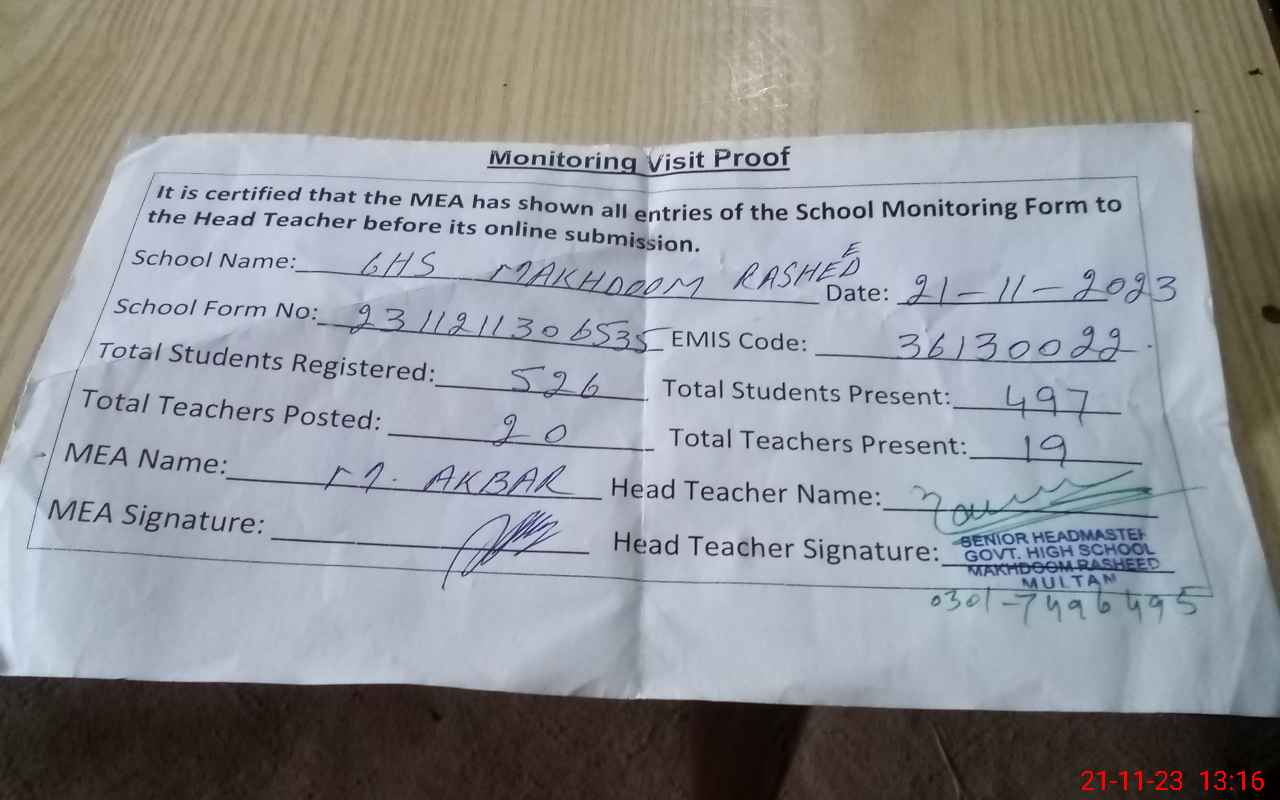 Monitoring Visit Proof
It is certified that the MEA has shown all entries of the School Monitoring Form to
the Head Teacher before its online submission.
School Name: GHS MAKHDOOM RASHEED Date: 21-11-2023
School Form No: 2311211306535 EMIS Code: 36130022
Total Students Registered: 526 Total Students Present: 497
Total Teachers Posted: 20 Total Teachers Present: 19
MEA Name: M. AKBAR Head Teacher Name:
MEA Signature: Head Teacher Signature:
SENIOR HEADMASTER
GOVT. HIGH SCHOOL
MAKHDOOM RASHEED
MULTAN
0301-7496495
21-11-23 13:16